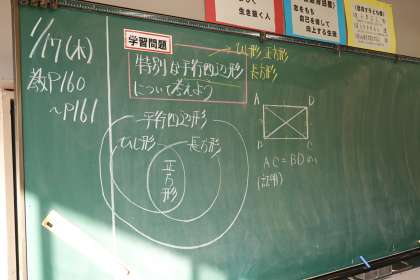 1/17(木)
数P160
~P161
学習問題
特別な平行四辺形
について考えよう
ひし形 正方形
長方形
平行四辺形
ひし形 長方形
正方形
A D
B C
AC=BDの
(証明)
生き抜く人
自己を律して
向上する生徒